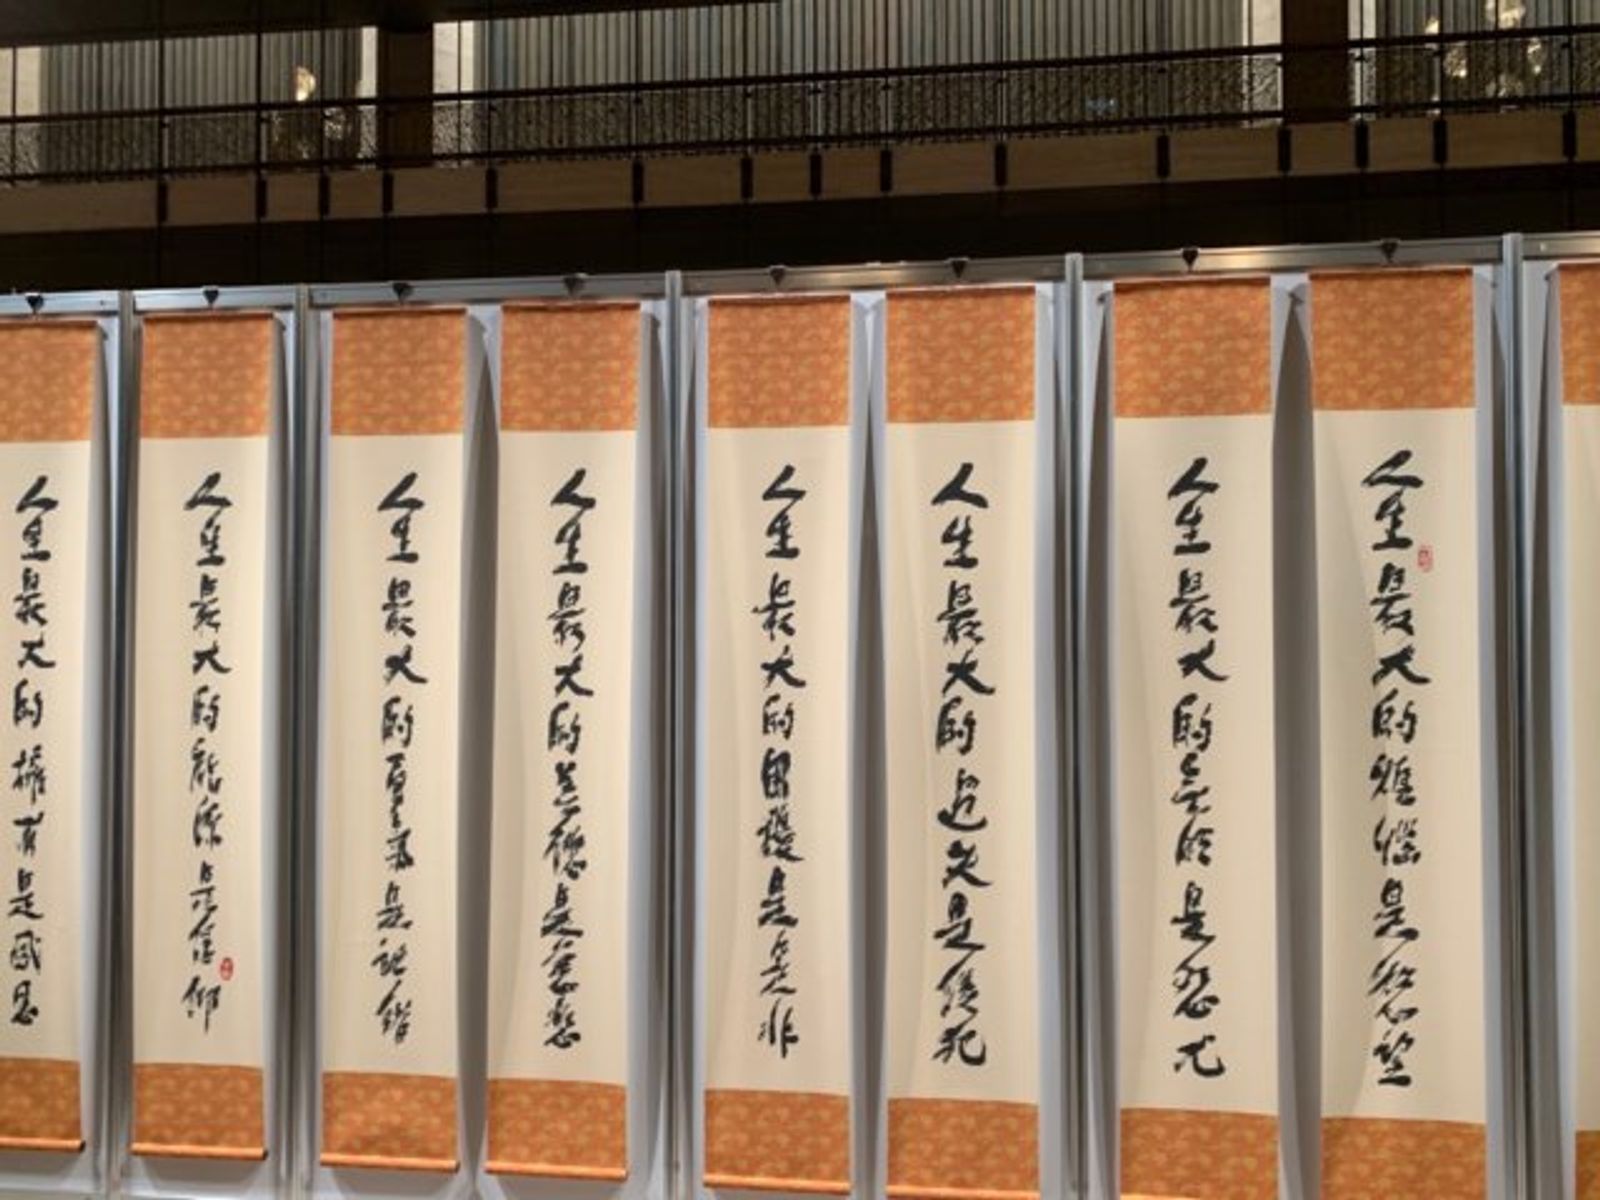 人生最大的煩惱是慾望
人生最大的無明是怨尤
人生最大的過失是侵犯
人生最大的困擾是是非
人生最大的美德是慈悲
人生最大的勇氣是認錯
人生最大的能源是信仰
人生最大的擁有是感恩